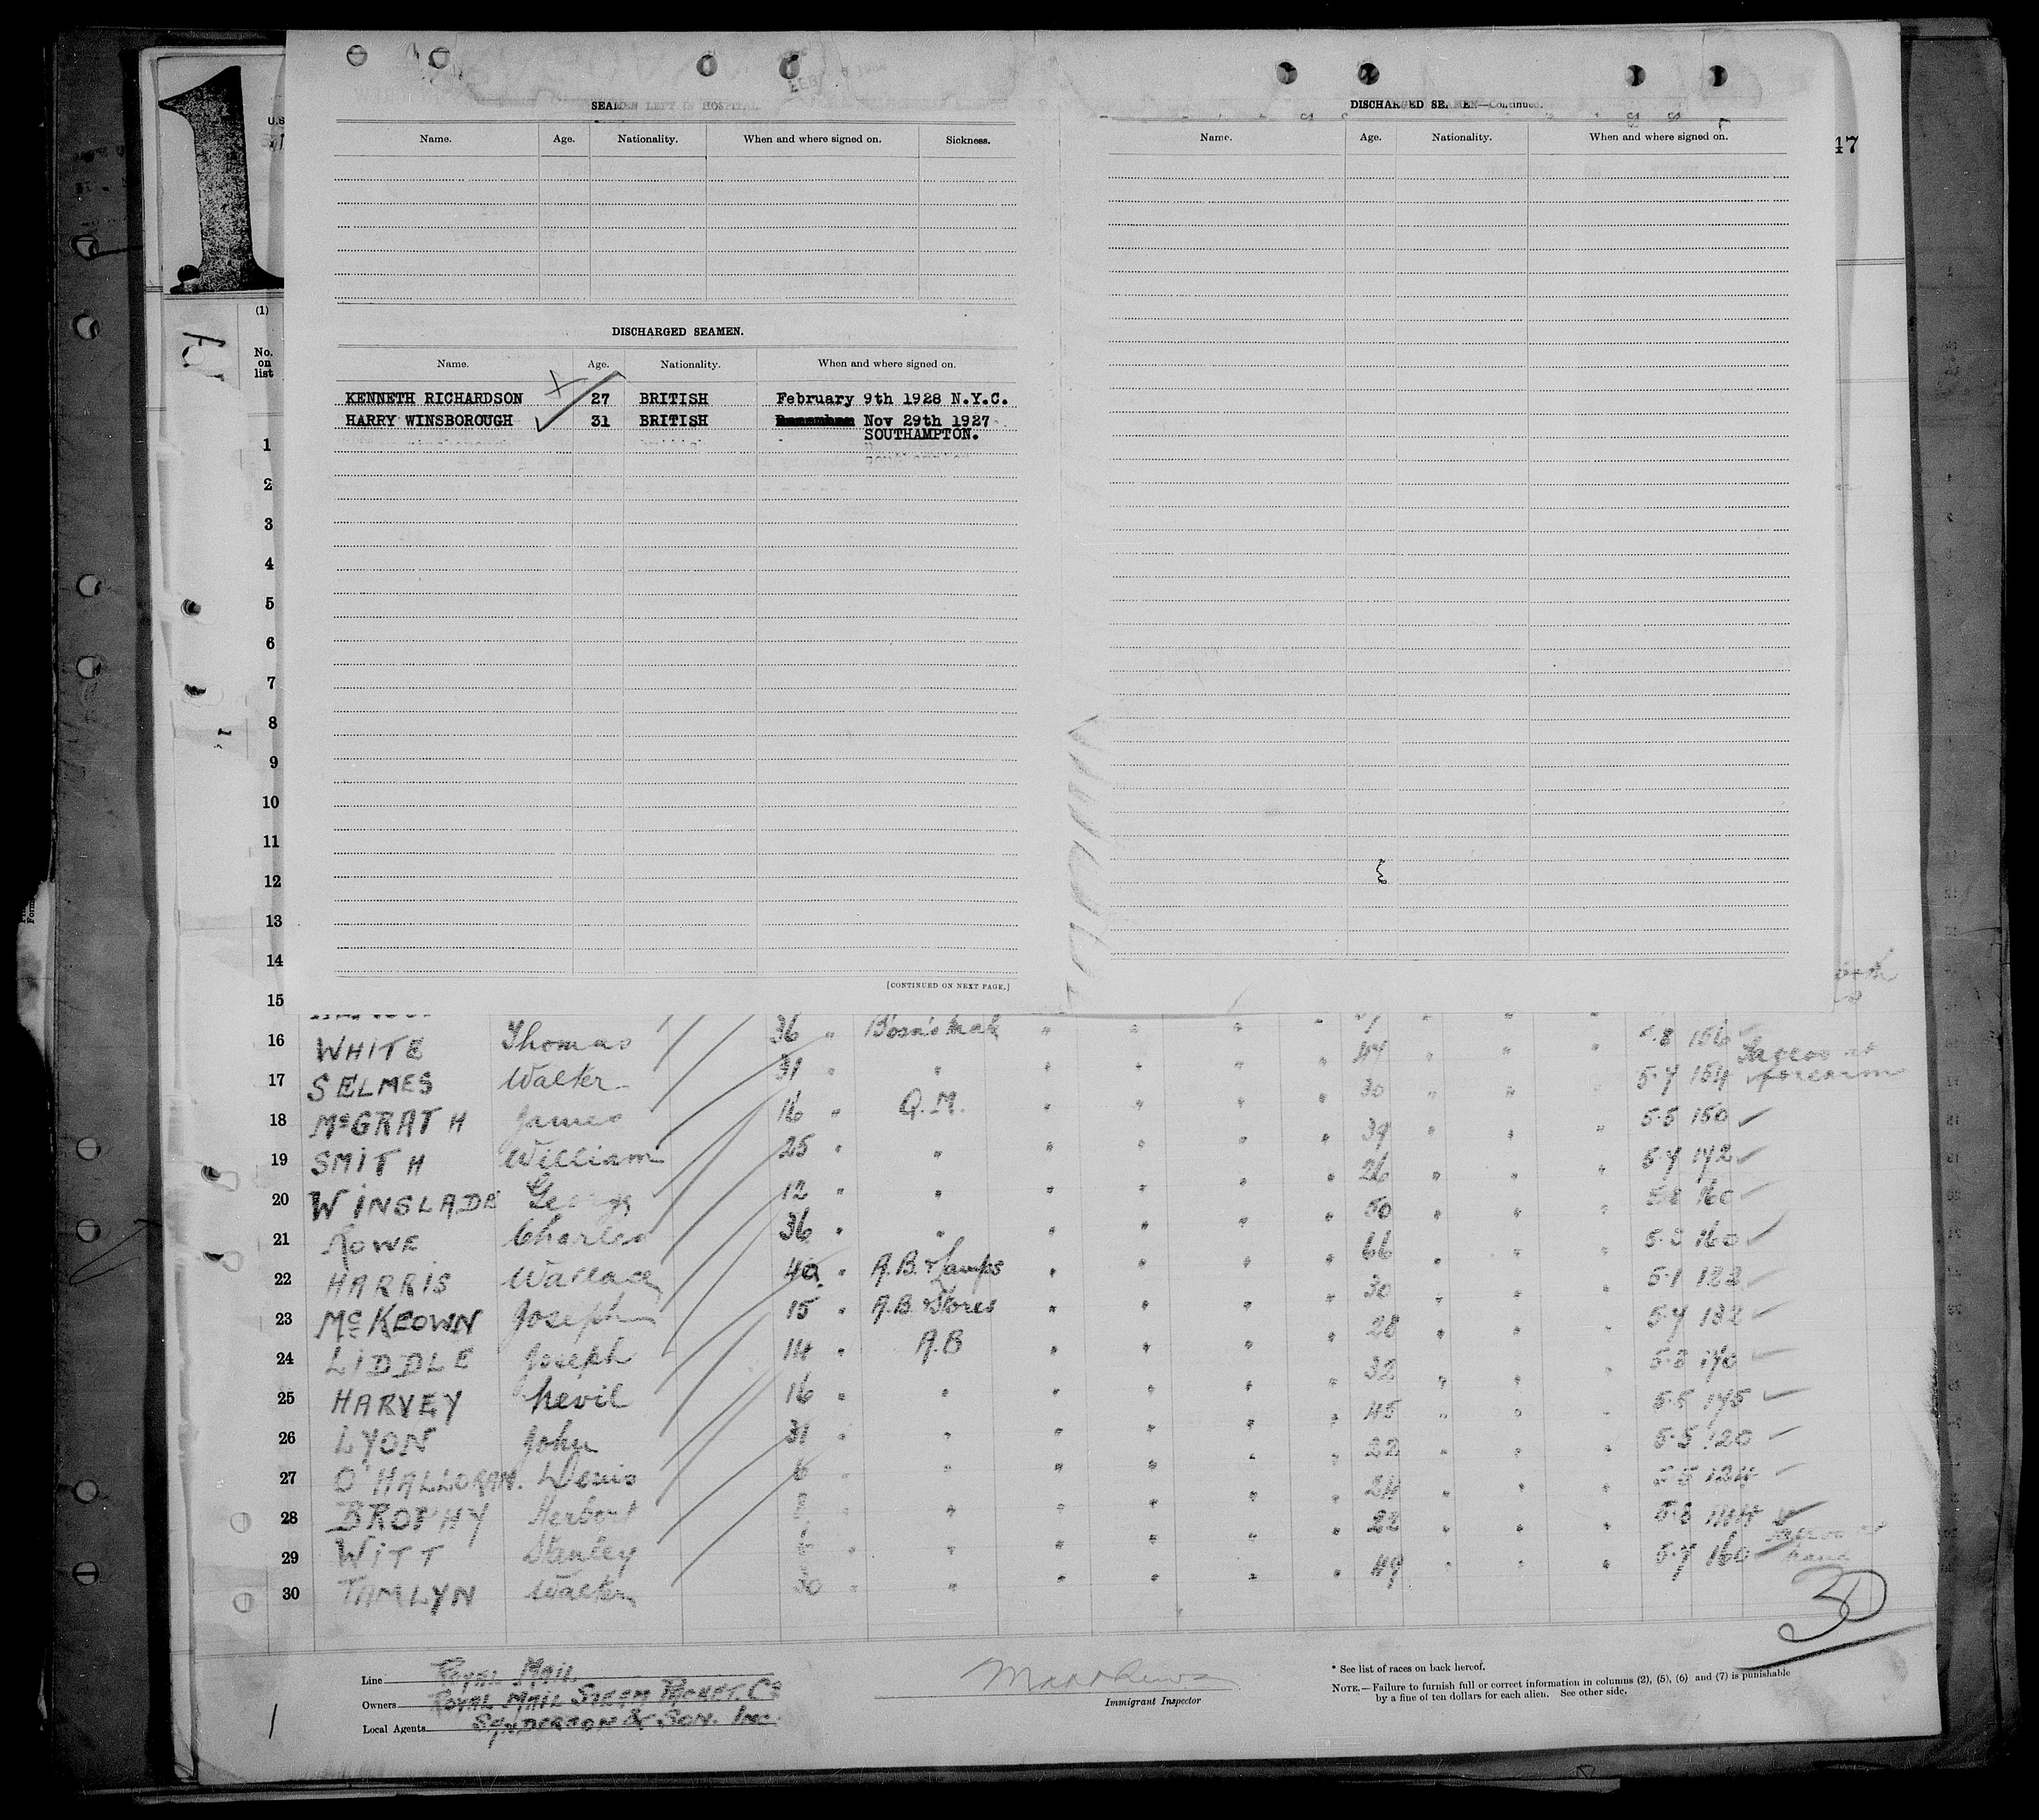 1
U.S.
47
SEAMEN LEFT IN HOSPITAL
Name. Age. Nationality. When and where signed on. Sickness.
DISCHARGED SEAMEN.
Name. Age. Nationality. When and where signed on.
KENNETH RICHARDSON 27 BRITISH February 9th 1928 N.Y.C.
HARRY WINSBOROUGH 31 BRITISH Nov 29th 1927
SOUTHAMPTON.
[CONTINUED ON NEXT PAGE.]
DISCHARGED SEAMEN—Continued.
Name. Age. Nationality. When and where signed on.
(1)
No.
on
list
1
2
3
4
5
6
7
8
9
10
11
12
13
14
15
16 WHITE Thomas 36 " Bosn's Mate " " " " 44 " " " 5.8 156
17 SELMES Walter 31 " " " " " " 30 " " " 5.7 154 forearm
18 McGRATH James 16 " Q.M. " " " " 39 " " " 5.5 150 ✓
19 SMITH William 25 " " " " " " 26 " " " 5.7 142 ✓
20 WINSLADE George 12 " " " " " " 50 " " " 5.8 160 ✓
21 ROWE Charles 36 " " " " " " 66 " " " 160 ✓
22 HARRIS Wallace 40 " A.B. & Lamps " " " " 30 " " " 5.1 ✓
23 McKEOWN Joseph 15 " A.B. Stores " " " " 28 " " " 5.7 132 ✓
24 LIDDLE Joseph 14 " A.B " " " " 32 " " " 140 ✓
25 HARVEY Nevil 16 " " " " " " 45 " " " 5.5 145 ✓
26 LYON John 31 " " " " " " 22 " " " 5.5 120 ✓
27 O'HALLORAN. Denis 6 " " " " " " 24 " " " 124 ✓
28 BROPHY Herbert " " " " " " 22 " " " 5.8 144 ✓
29 WITT Stanley 6 " " " " " " 49 " " " 5.7 160 ✓
30 TAMLYN Walter 30 " "
30
Line ROYAL MAIL
Owners ROYAL MAIL STEAM PACKET. Co
Local Agents SANDERSON & SON. INC.
Matthews
Immigrant Inspector
* See list of races on back hereof.
NOTE.—Failure to furnish full or correct information in columns (2), (5), (6) and (7) is punishable
by a fine of ten dollars for each alien. See other side.
1